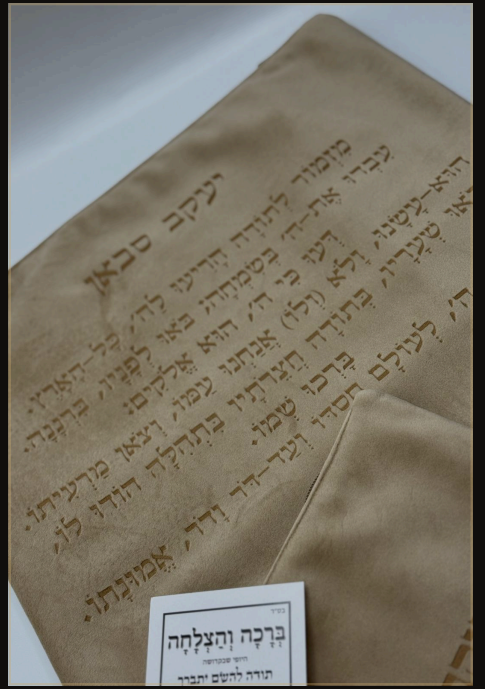 יעקב סבאן
מִזְמוֹר לְתוֹדָה הָרִיעוּ לַה', כָּל-הָאָרֶץ.
עִבְדוּ אֶת-ה' בְּשִׂמְחָה, בֹּאוּ לְפָנָיו, בִּרְנָנָה.
דְּעוּ כִּי ה', הוּא אֱלֹקִים:
הוּא-עָשָׂנוּ, וְלֹא (וְלוֹ) אֲנַחְנוּ עַמּוֹ, וְצֹאן מַרְעִיתוֹ.
שְׁעָרָיו, בְּתוֹדָה חֲצֵרֹתָיו בִּתְהִלָּה הוֹדוּ לוֹ,
בָּרְכוּ שְׁמוֹ.
ה', לְעוֹלָם חַסְדּוֹ וְעַד-דֹּר וָדֹר, אֱמוּנָתוֹ.
בס"ד
בְּרָכָה וְהַצְלָחָה
היופי שבקדושה
תודה להשם יתברך